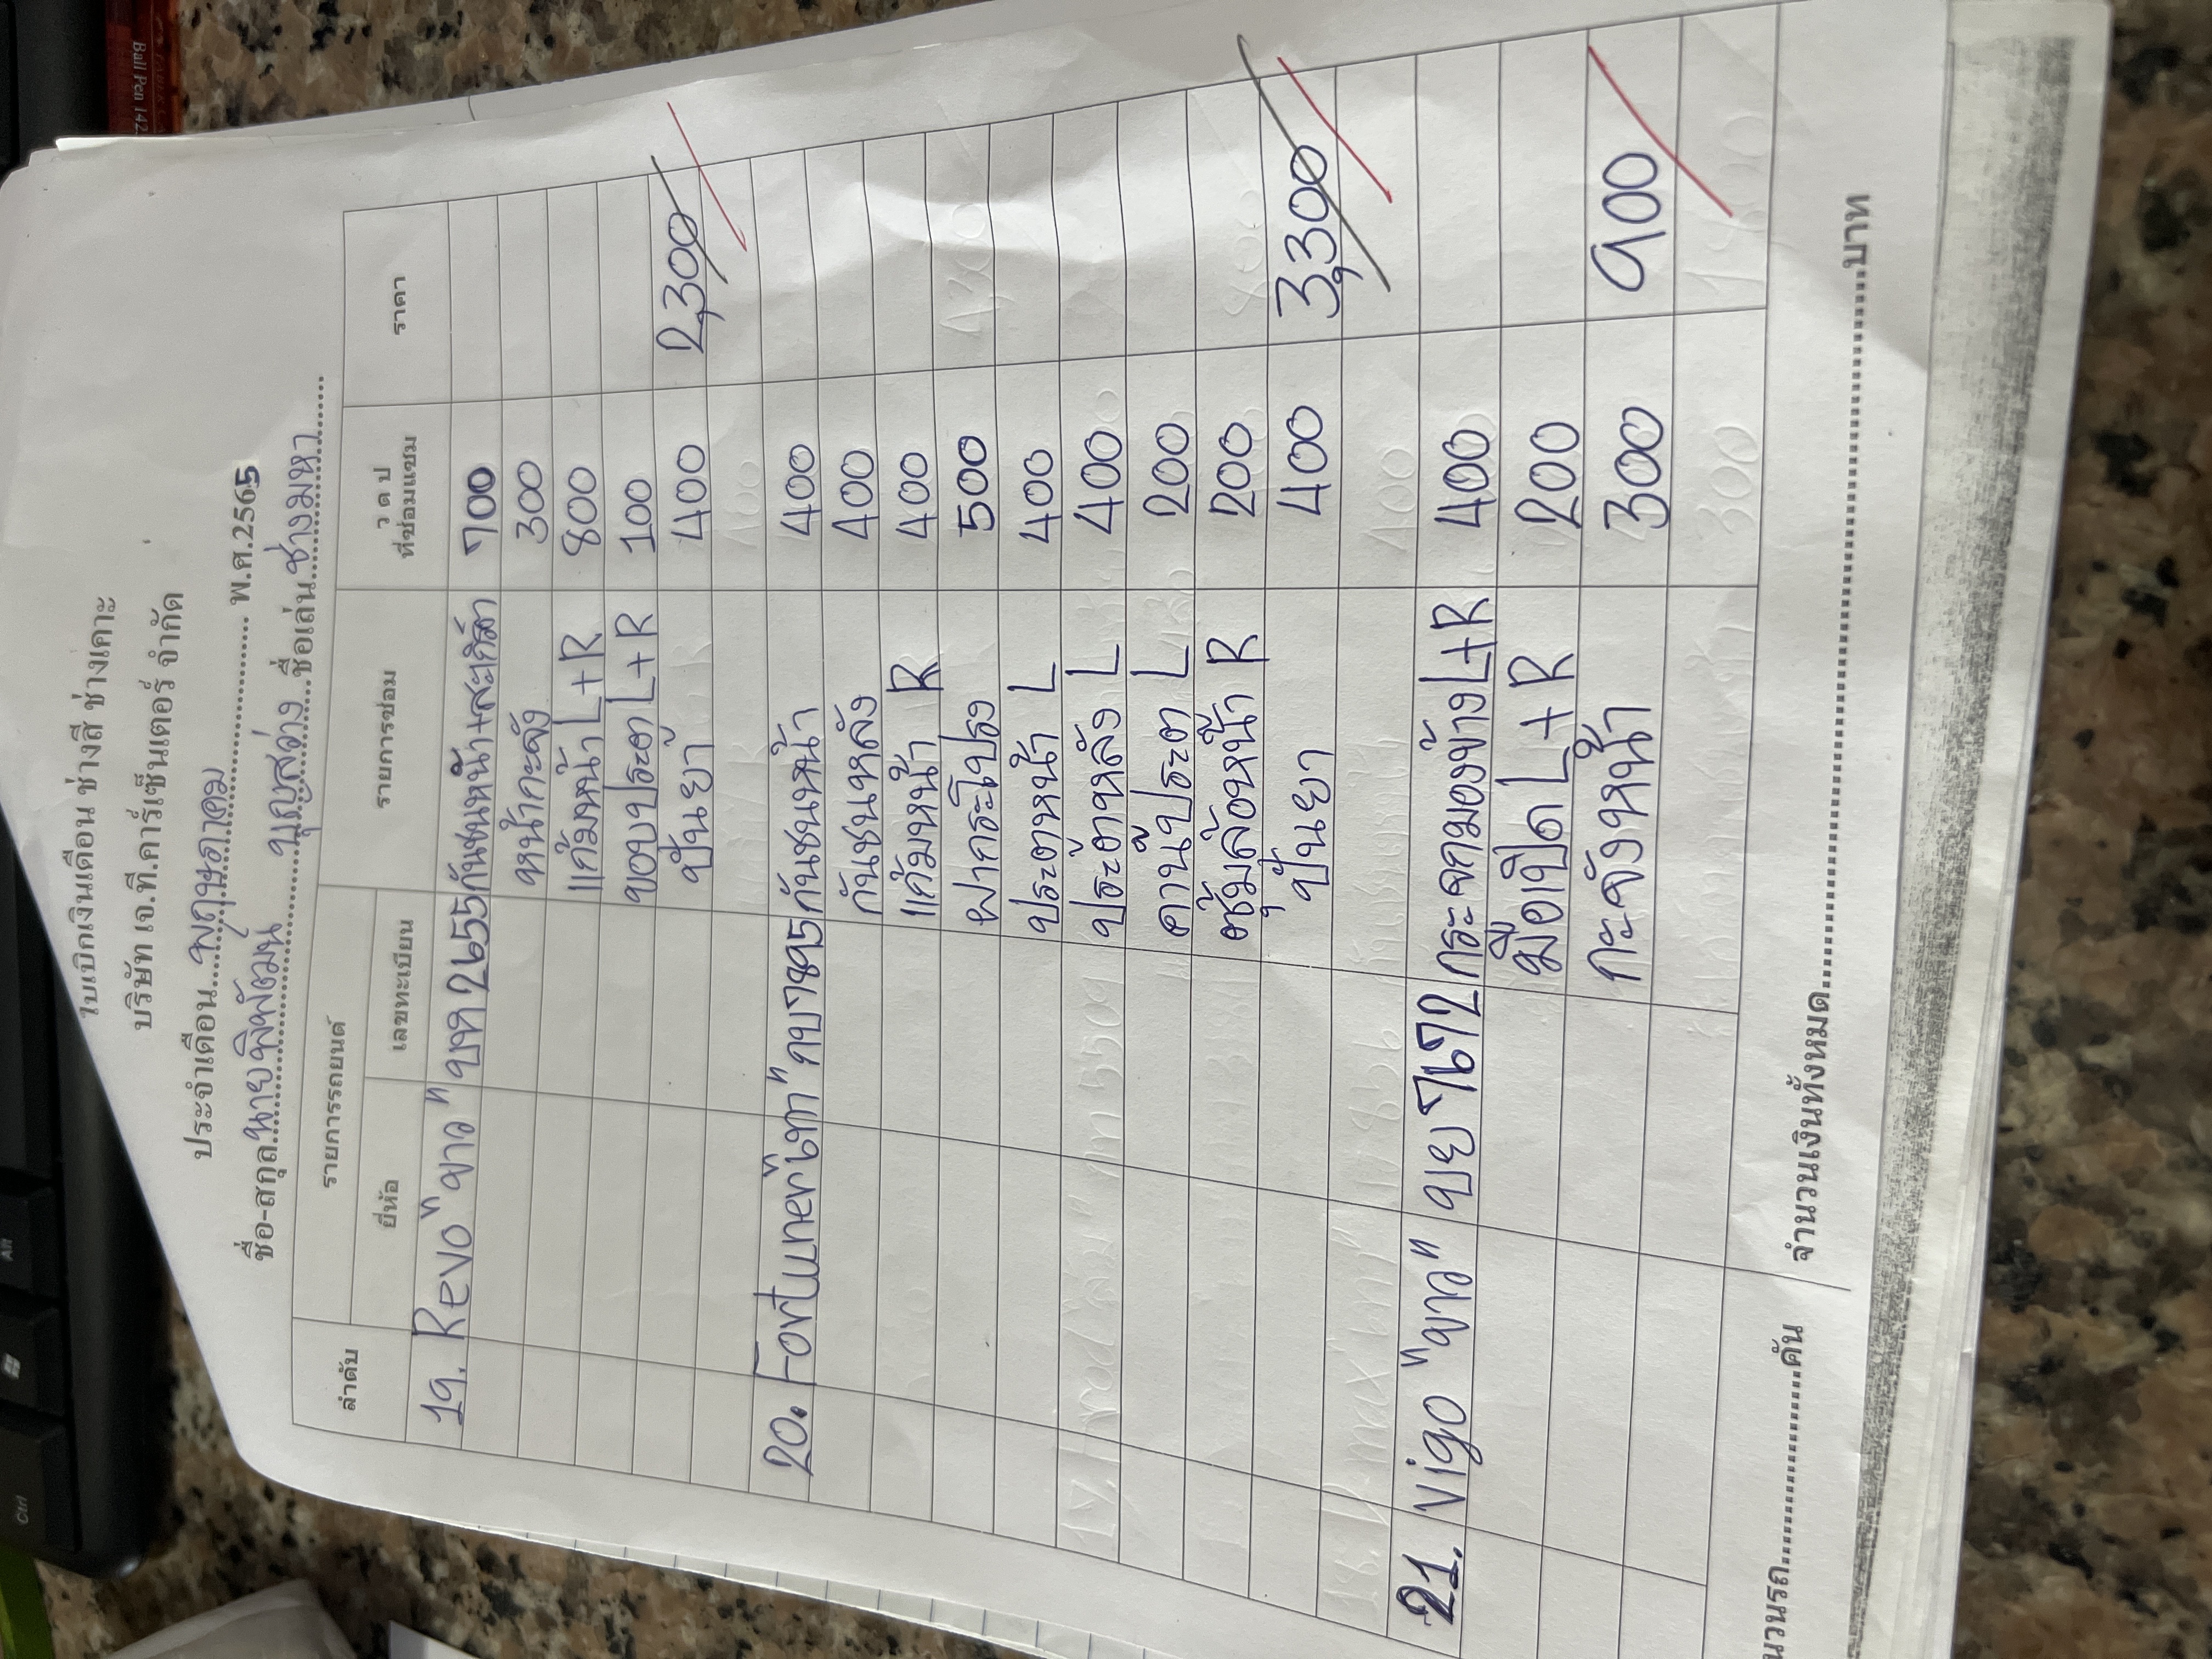 ใบเบิกเงินเดือน ช่างสี ช่างเคาะ
บริษัท เจ.ที.คาร์เซ็นเตอร์ จำกัด
ประจำเดือน...พฤษภาคม... พ.ศ.2565
ชื่อ-สกุล..นายพิพัฒน์ บุญสว่าง...ชื่อเล่น.ช่างมหา...
ลำดับ รายการรถยนต์ รายการซ่อม ว ด ป ที่ซ่อมแซม ราคา
ยี่ห้อ เลขทะเบียน
19. Revo "ขาว" บห 2655 กันชนหน้า+สะเกิ้ลา 700
หน้ากะจัง 300
แก้มหน้า L+R 800
ขอบประตา L+R 100
ปั่นยา 400 2,300
20. Fortuner "เทา" กบ 7895 กันชนหน้า 400
กันชนหลัง 400
แก้มหน้า R 400
ฝากระโปรง 500
ประตาหน้า L 400
ประต้าหลัง L 400
คานปีประตา L 200
ซุ้มล้อหน้า R 200
ปั่นยา 400 3,300
21. Vigo "ขาว" บย 7672 กระจกมองข้าง L+R 400
มือเปิด L+R 200
กะจังหน้า 300 900
นวนรถ..........คัน จำนวนเงินทั้งหมด..........บาท
Ball Pen 142
Alt
Ctrl